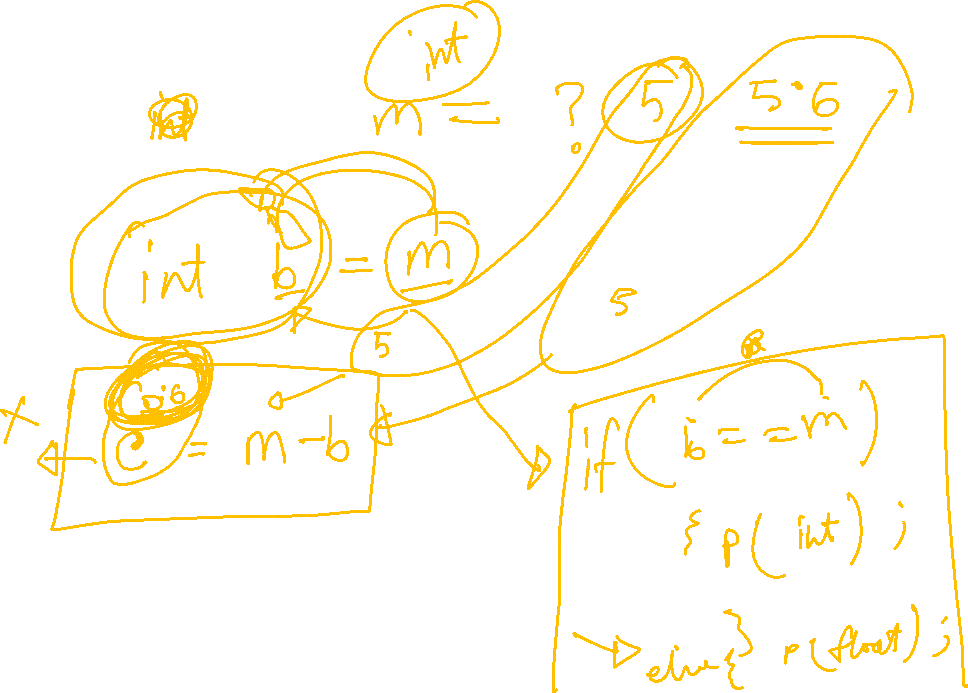 int
m = ? 5 5.6
int b = m
5
5
0.6
x c = m - b
if ( b == m )
{ p( int ) ;
else { } p( float ) ;